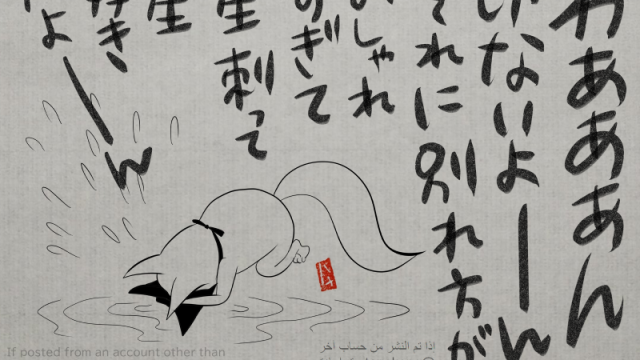 わあああん
けないよーん
それに別れ方が
おしゃれ
すぎて
生刺って
生
好き、
よーん
If posted from an account other than
اذا تم النشر من حساب آخر